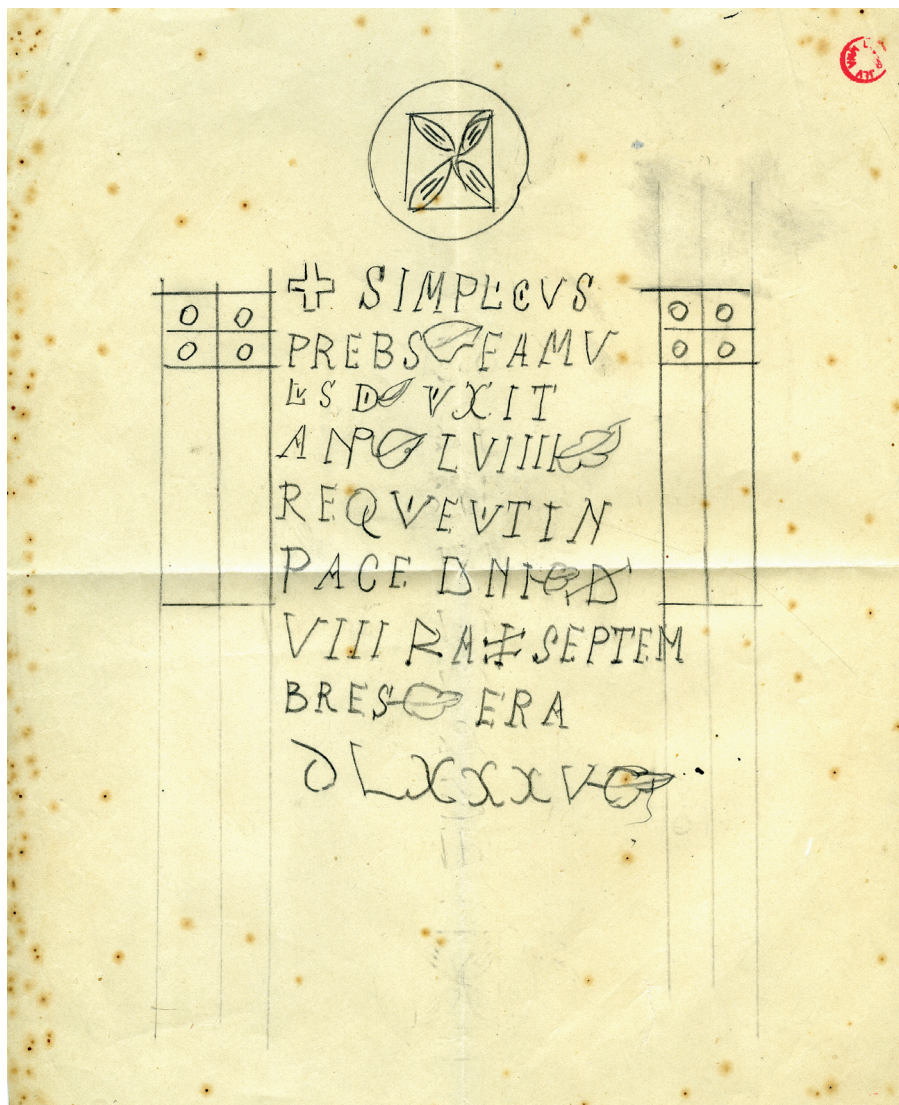 SIMPLICIVS
PREBS FAMV
LVS DI VIXIT
ANN LVIIII
REQVIEVIT IN
PACE DNI D
VIII KAL SEPTEM
BRES ERA
DLXXXV